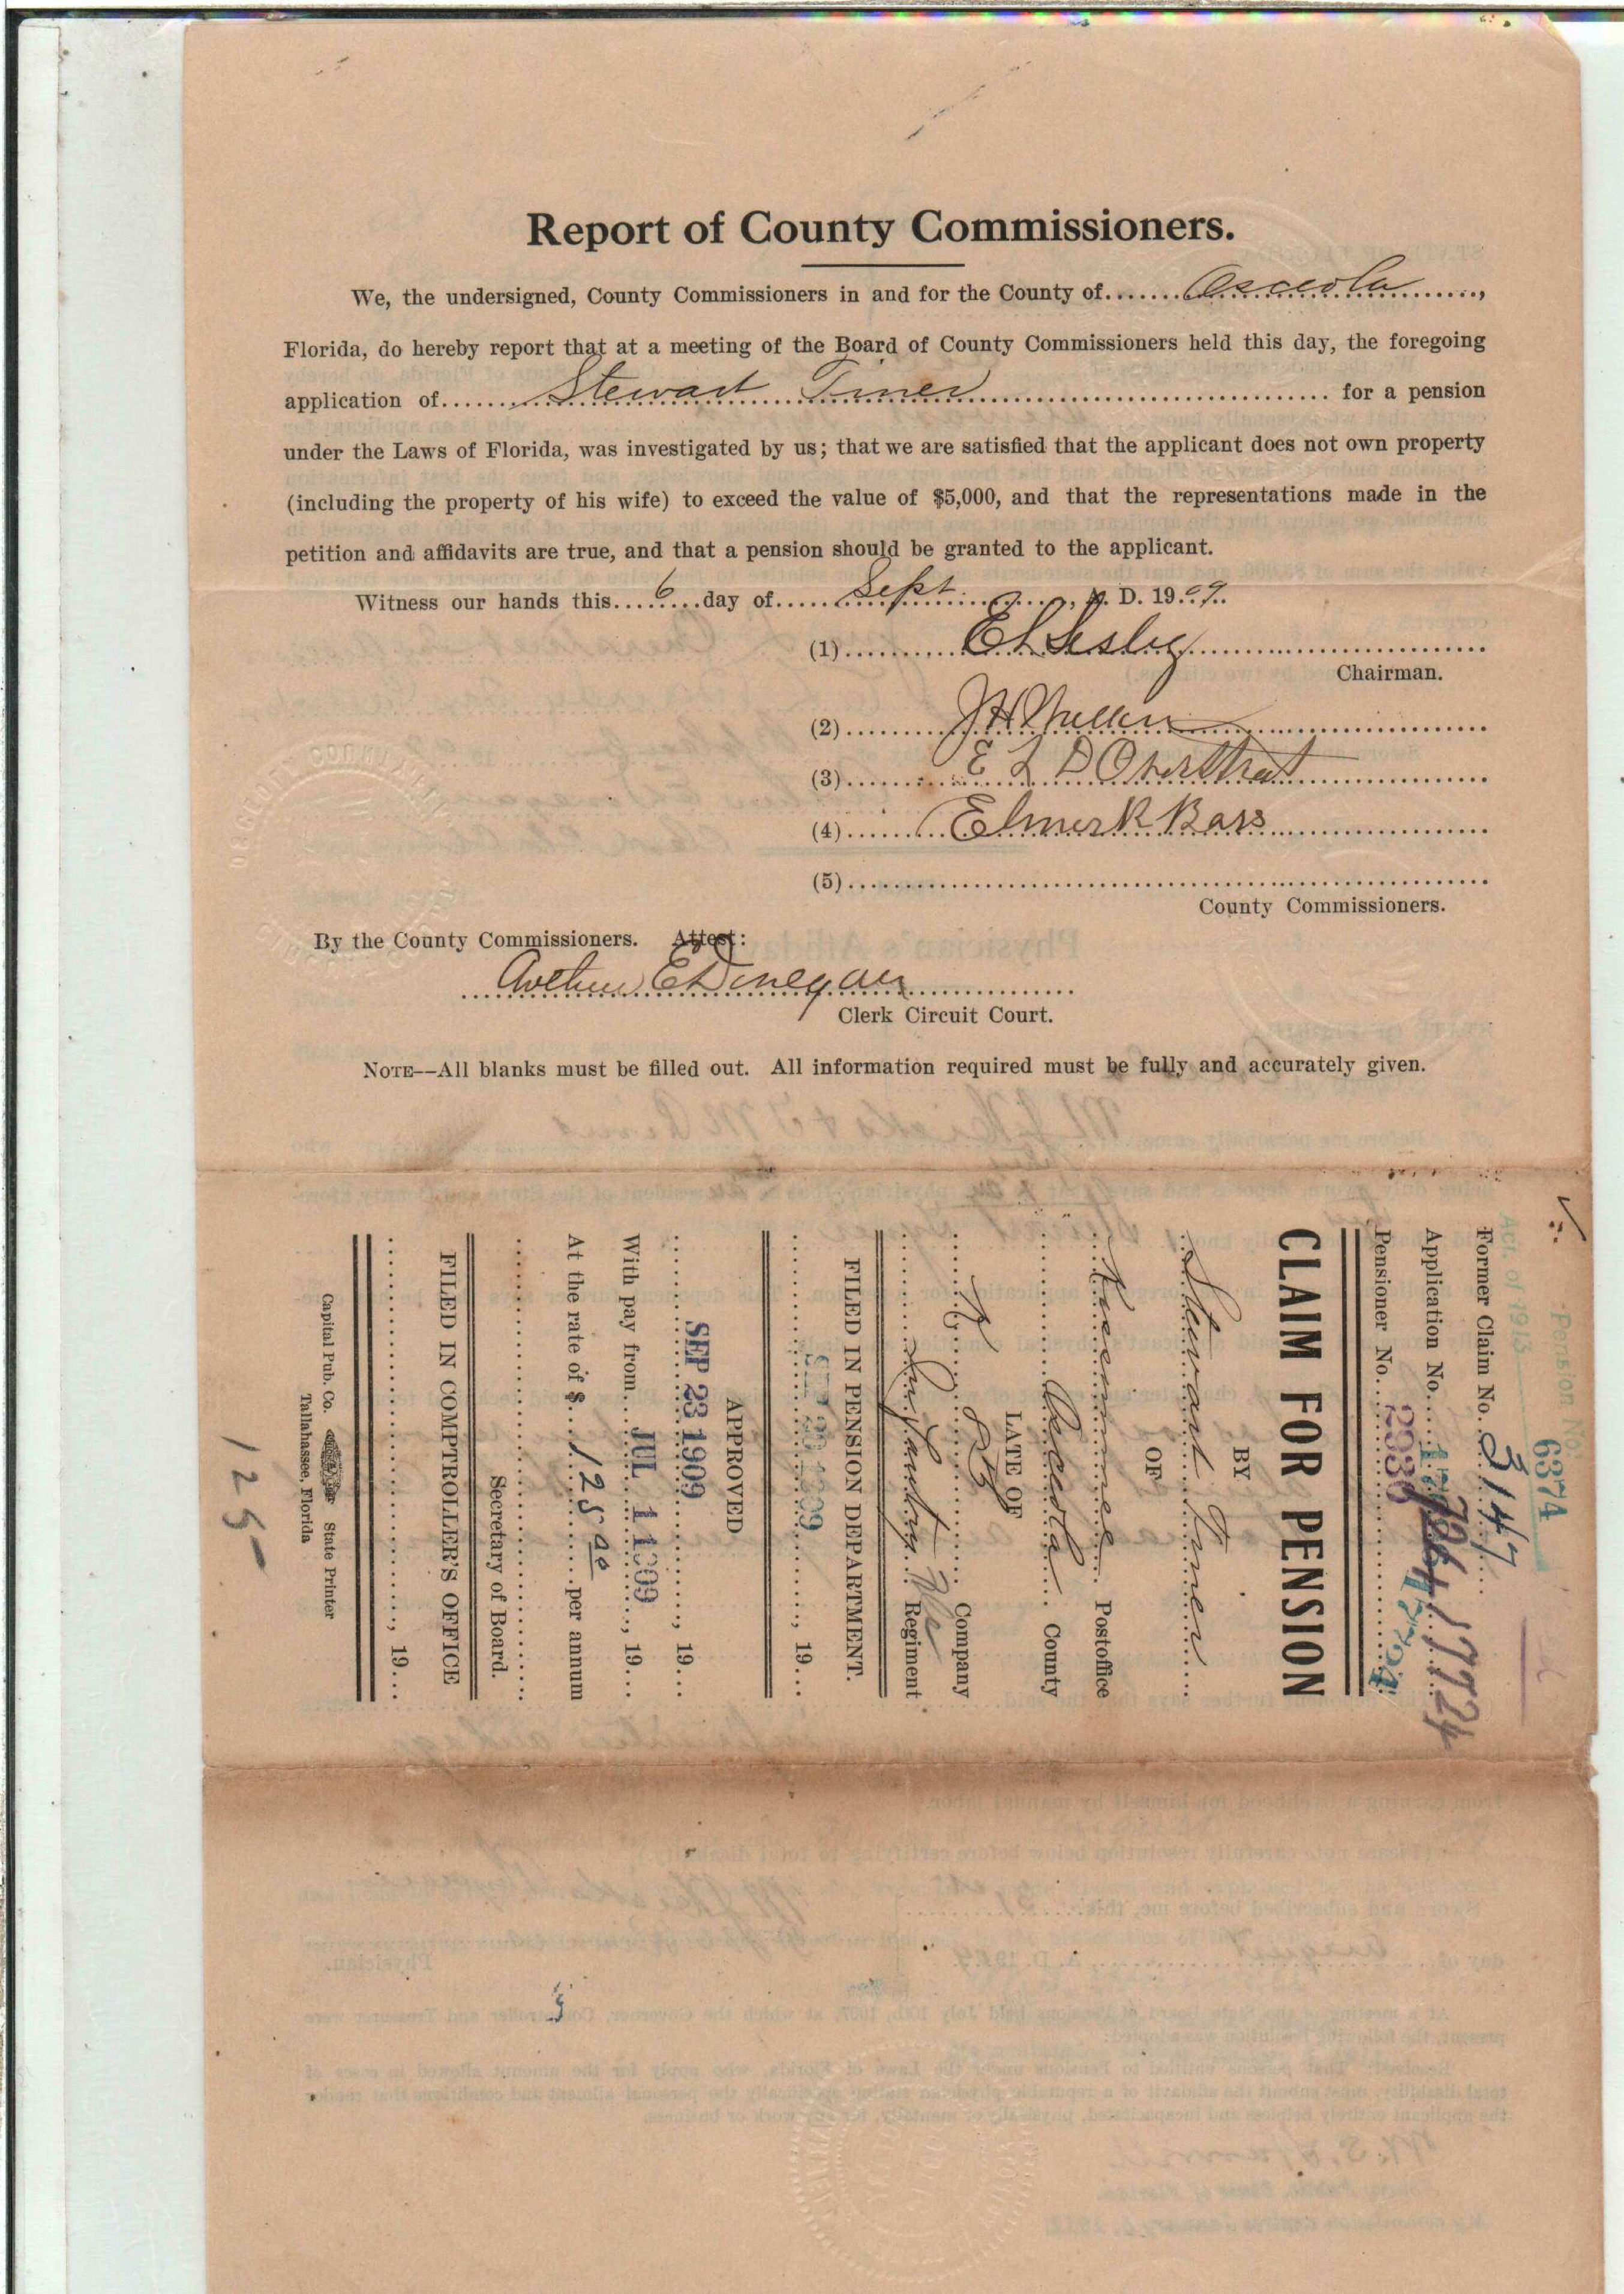 Report of County Commissioners.
We, the undersigned, County Commissioners in and for the County of Osceola,
Florida, do hereby report that at a meeting of the Board of County Commissioners held this day, the foregoing
application of Stewart Tiner for a pension
under the Laws of Florida, was investigated by us; that we are satisfied that the applicant does not own property
(including the property of his wife) to exceed the value of $5,000, and that the representations made in the
petition and affidavits are true, and that a pension should be granted to the applicant.
Witness our hands this 6 day of Sept, A. D. 1909.
(1) E L Lesley
Chairman.
(2) J H
(3) E L D Overstreet
(4) Elmer R Bass
(5)
County Commissioners.
By the County Commissioners. Attest:
Arthur E Donegan
Clerk Circuit Court.
NOTE--All blanks must be filled out. All information required must be fully and accurately given.
Pension No. 6374
Act. of 1913
Former Claim No. 3147
Application No. 17724
Pensioner No.
CLAIM FOR PENSION
BY
Stewart Tiner
OF
Kissimmee Postoffice
Osceola County
LATE OF
Company
Infantry Regiment
FILED IN PENSION DEPARTMENT.
19
APPROVED
SEP 23 1909, 19
With pay from JUL 1 1909, 19
At the rate of $ 125.00 per annum
Secretary of Board.
FILED IN COMPTROLLER'S OFFICE
, 19
Capital Pub. Co. State Printer
Tallahassee, Florida
125-